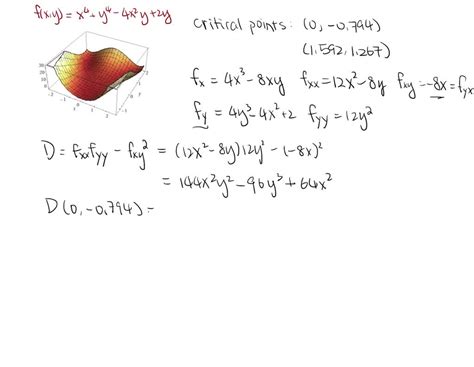 f(x,y) = x⁴ + y⁴ - 4x²y + 2y
critical points: (0, -0.794)
(1.592, 1.267)
30
20
10
0
-2
-1
0
1
2
-2
-1
0
1
2
fx = 4x³ - 8xy fxx = 12x² - 8y fxy = -8x = fyx
fy = 4y³ - 4x² + 2 fyy = 12y²
D = fxx fyy - fxy² = (12x² - 8y)12y² - (-8x)²
= 144x²y² - 96y³ + 64x²
D(0, -0.794) =